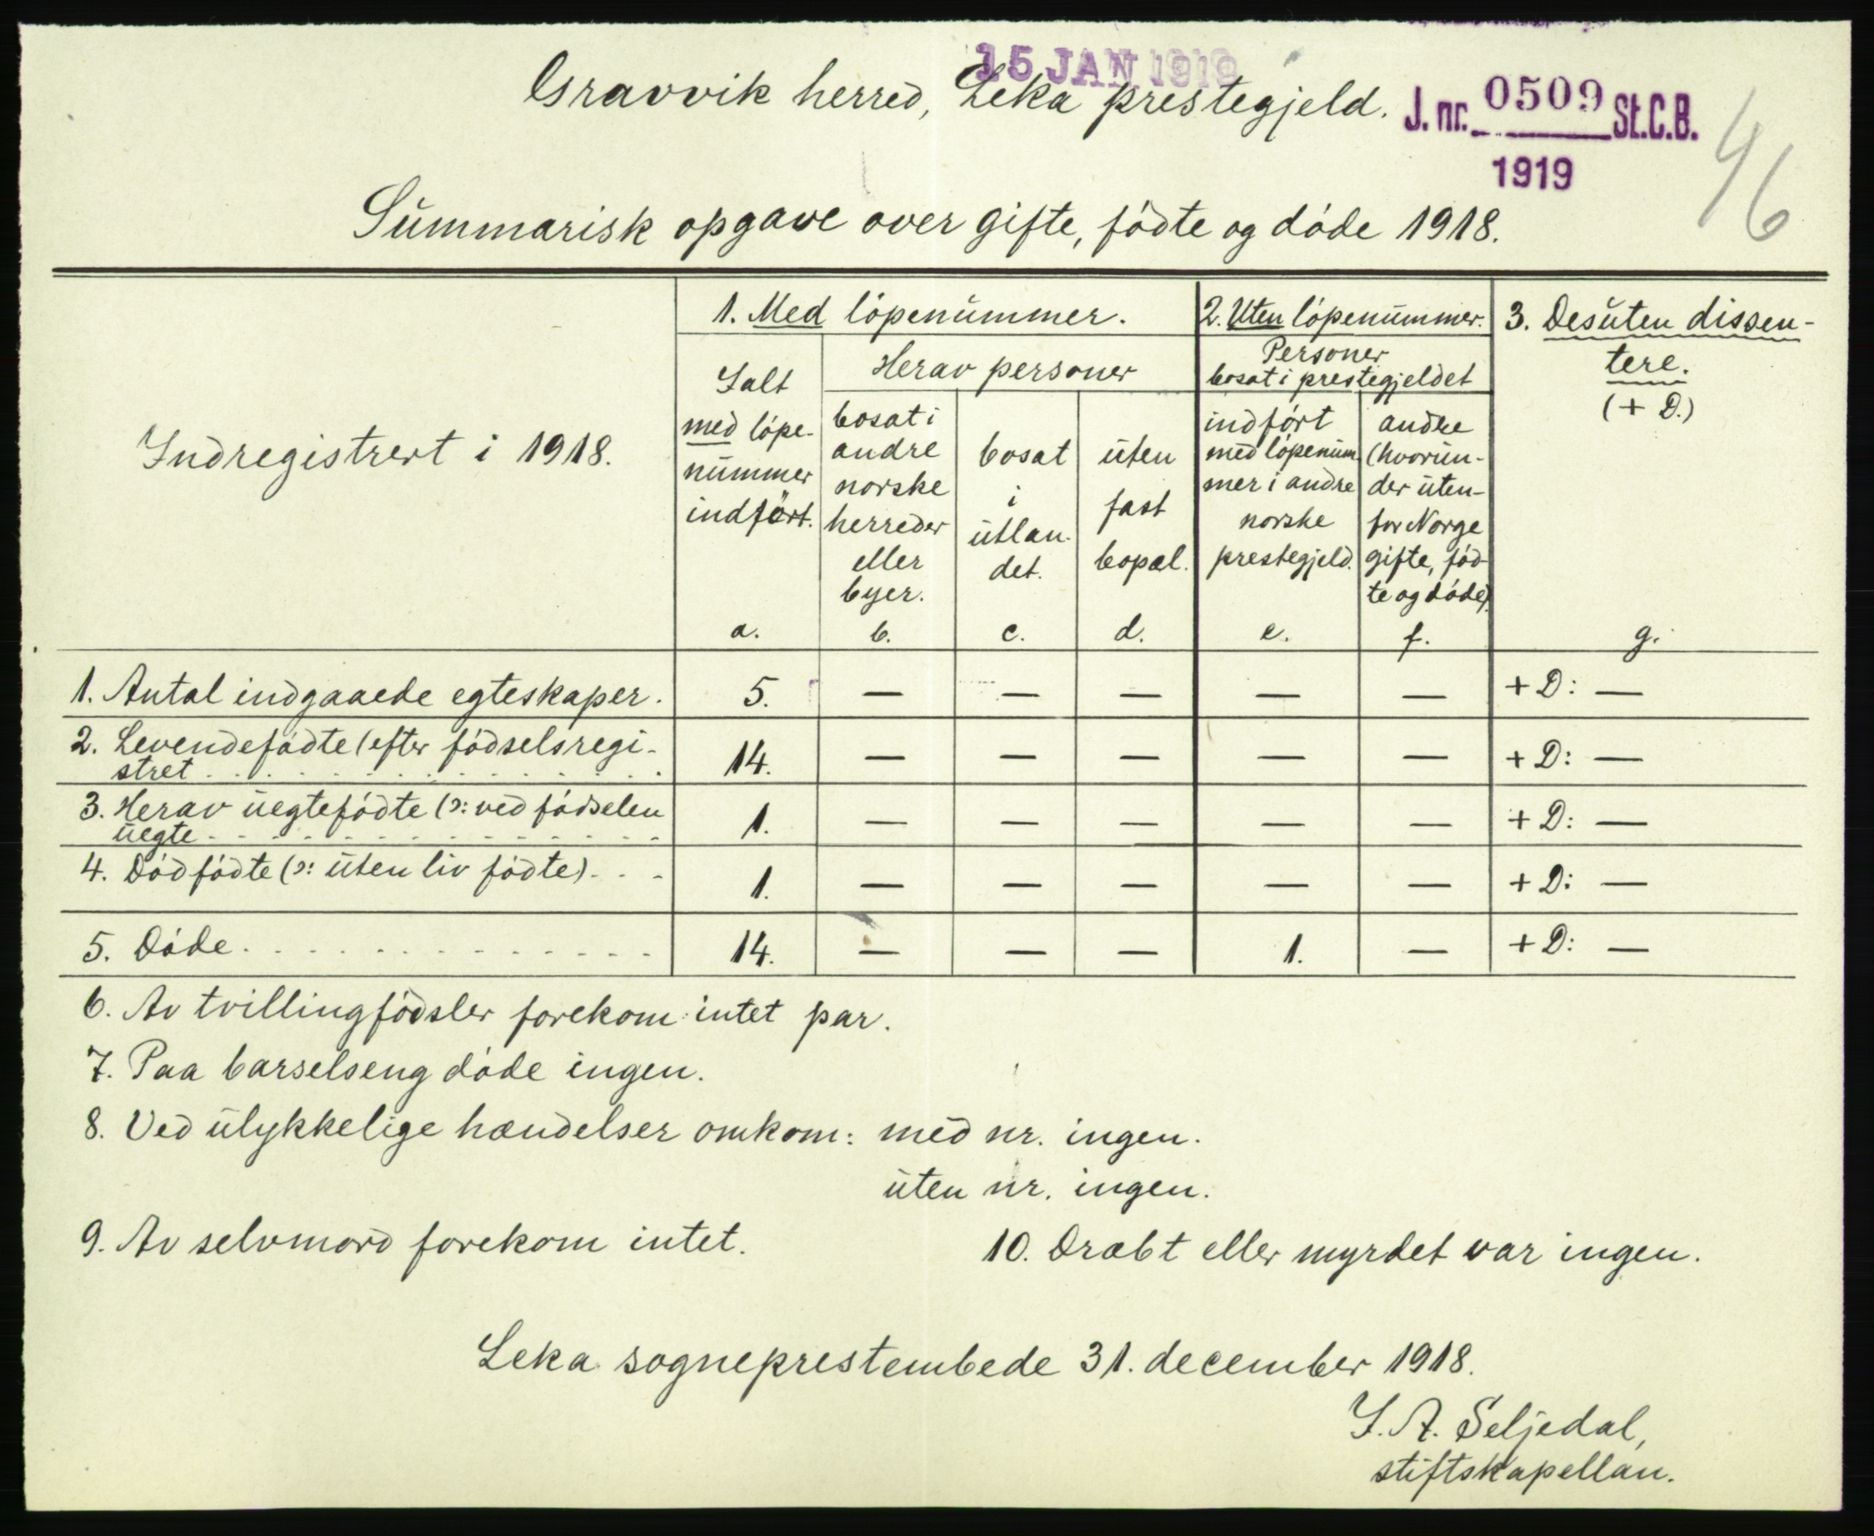 15 JAN 1919
Gravvik herred, Leka prestegjeld.
J. nr. 0509 St.C.B.
1919
46
Summarisk opgave over gifte, födte og döde 1918.
Indregistrert i 1918.
1. Med löpenummer.
2. Uten löpenummer.
3. Desuten dissen-
tere.
(+ D.)
Ialt
med löpe-
nummer
indfört.
a.
Herav personer
bosat i
andre
norske
herreder
eller
byer.
b.
bosat
i
utlan-
det.
c.
uten
fast
bopæl.
d.
Personer
bosat i prestegjeldet
indfört
med löpenum
mer i andre
norske
prestegjeld.
e.
andre
(hvorun-
der uten-
for Norge
gifte, föd-
te og döde).
f.
g.
1. Antal indgaaede egteskaper. 5. — — — — — + D: —
2. Levendefödte (efter födselsregi-
stret . . . 14. — — — — — + D: —
3. Herav uegtefödte (ɔ: ved födselen
uegte . . . 1. — — — — — + D: —
4. Dödfödte (ɔ: uten liv födte) . . . 1. — — — — — + D: —
5. Döde . . . 14. — — — 1. — + D: —
6. Av tvillingfödsler forekom intet par.
7. Paa barselseng döde ingen.
8. Ved ulykkelige hændelser omkom: med nr. ingen.
uten nr. ingen.
9. Av selvmord forekom intet. 10. Dræbt eller myrdet var ingen.
Leka sogneprestembede 31. december 1918.
I. A. Seljedal,
stiftskapellan.